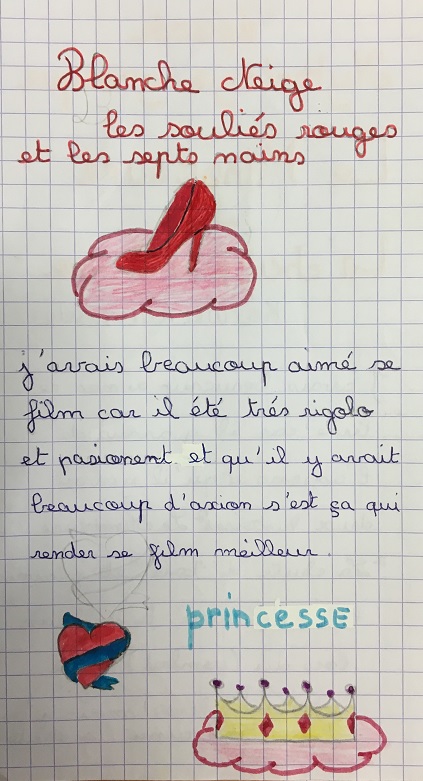 Blanche Neige
les souliés rouges
et les septs nains
j'avais beaucoup aimé se
film car il été trés rigolo
et pasionent et qu'il y avait
beaucoup d'axion s'est ça qui
render se film meilleur.
princesse